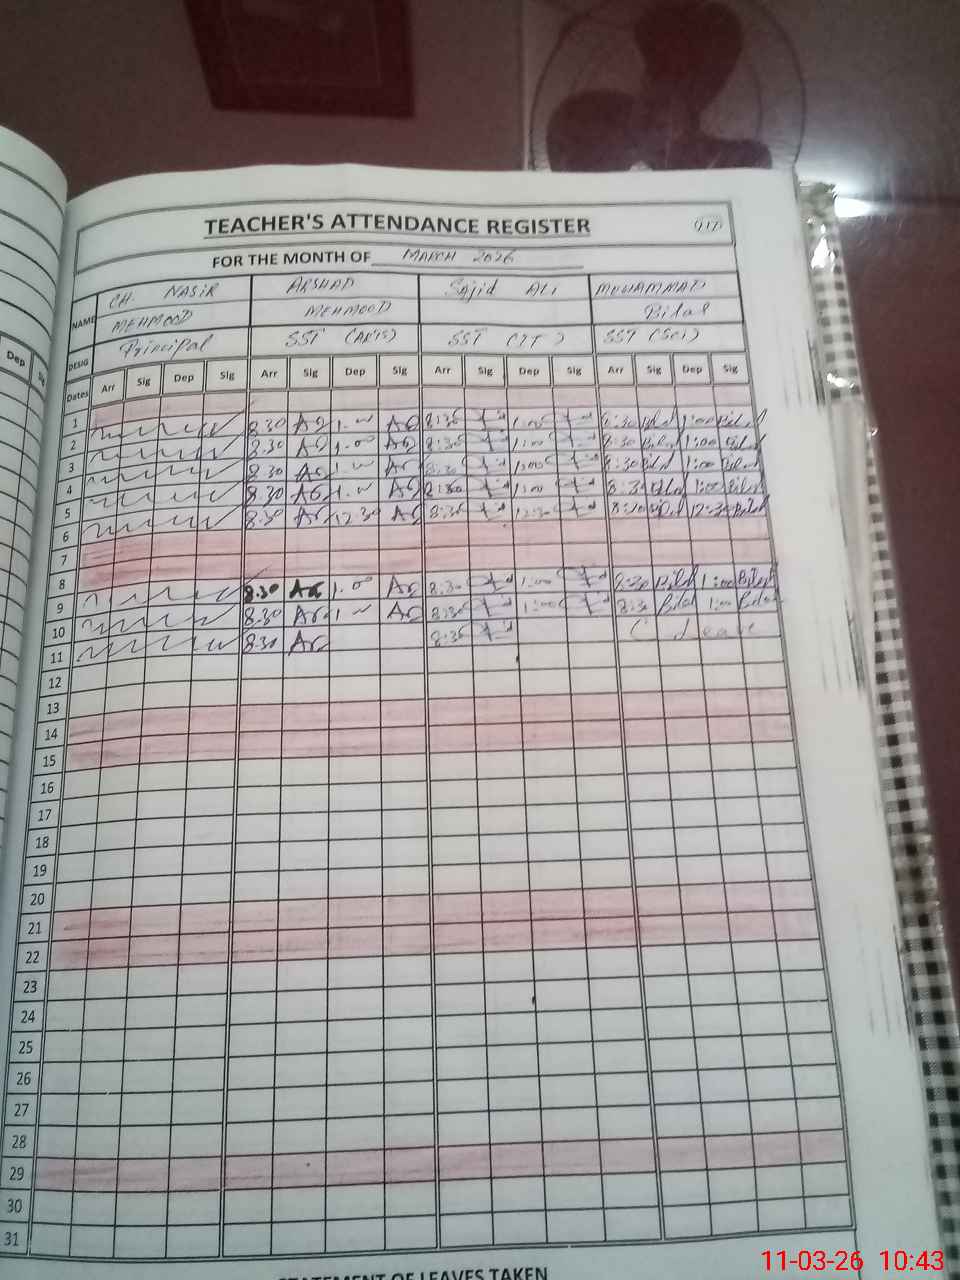 TEACHER'S ATTENDANCE REGISTER
FOR THE MONTH OF MARCH 2026
NAME CH. NASIR ARSHAD Sajid ALI MUHAMMAD
MEHMOOD MEHMOOD Bilal
DESIG Principal SST (ARTS) SST (IT) SST (Sci)
Dep
Dates Arr Sig Dep Sig Arr Sig Dep Sig Arr Sig Dep Sig Arr Sig Dep Sig
1
2 8.30 AG 1.00 AG 8:30 1:00 8:30 Bilal 1:00 Bilal
3 8.30 AG 1.00 AG 8:30 1:00 8:30 Bilal 1:00 Bilal
4 8.30 AG 1.00 AG 8:30 1:00 8:30 Bilal 1:00 Bilal
5 8.30 AG 1.00 AG 8:30 1:00 8:30 Bilal 1:00 Bilal
6 8.30 AG 12.30 AG 8:30 12:30 8:30 Bilal 12:30 Bilal
7
8
9 8.30 AG 1.00 AG 8:30 1:00 8:30 Bilal 1:00 Bilal
10 8.30 AG 1.00 AG 8:30 1:00 8:30 Bilal 1:00 Bilal
11 8.30 AG 8:30 C Leave
12
13
14
15
16
17
18
19
20
21
22
23
24
25
26
27
28
29
30
31
STATEMENT OF LEAVES TAKEN
11-03-26 10:43